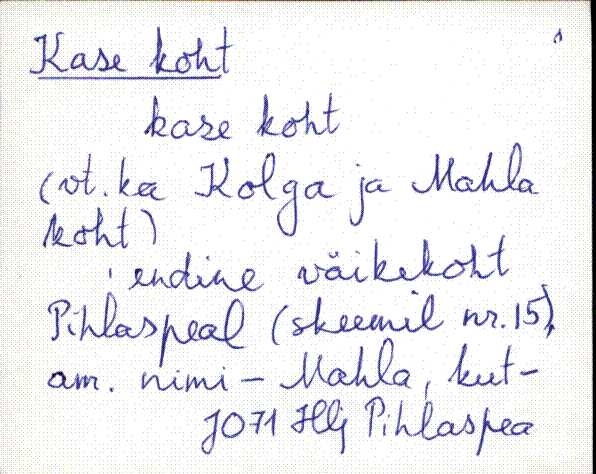 Kase koht
kase koht
(vt. ka Kolga ja Mahla
koht)
, endine väikekoht
Pihlaspeal (skeemil nr. 15),
am. nimi – Mahla, kut-
J071 Hlj Pihlaspea